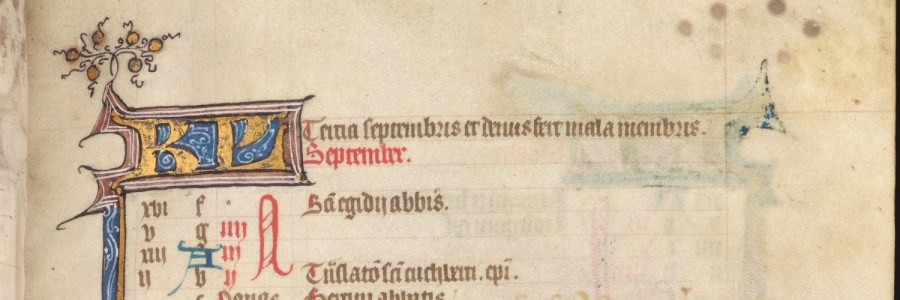 KL Tertia septembris et denus fert mala membris.
September.
xvi f . Sci egidij abbis.
v g iiij
xiij A iij N
ij b ij Tnslato sci cuthbti. epi.
c Nonas